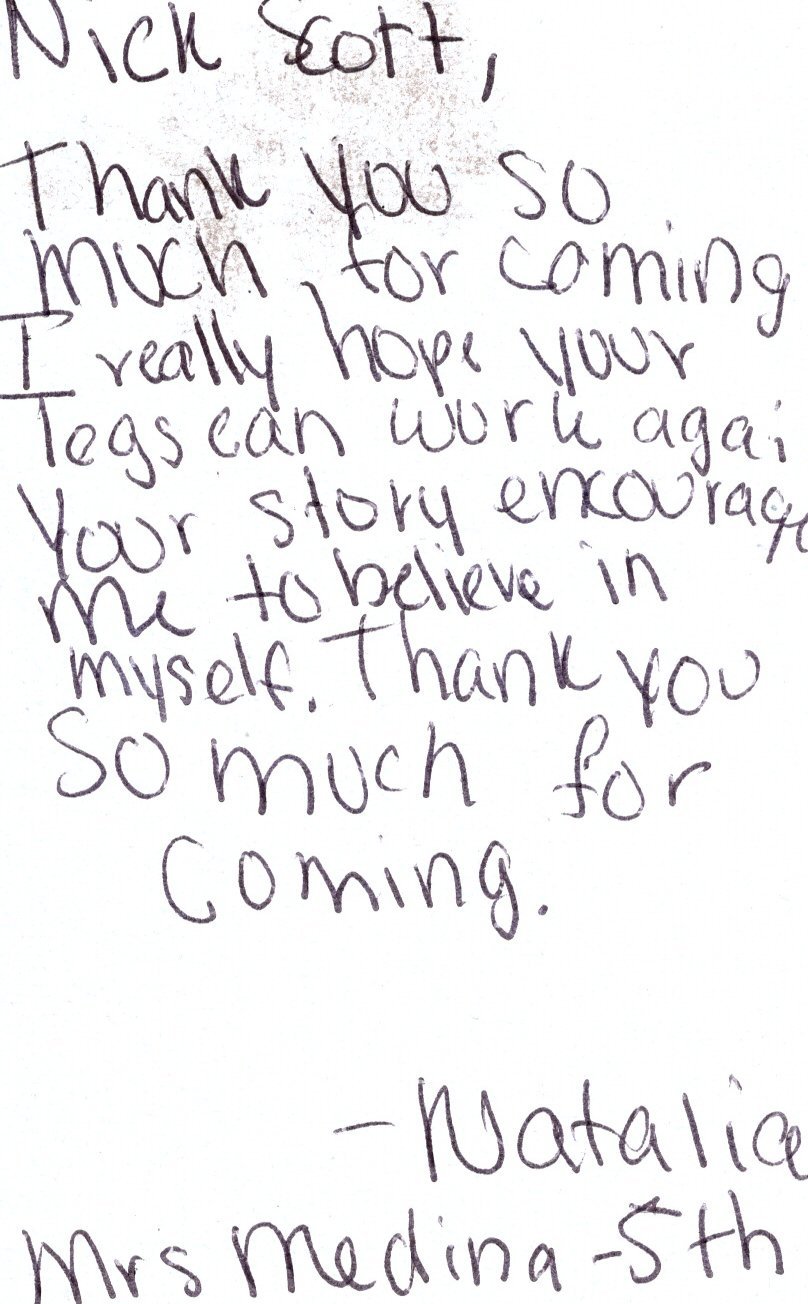 Nick Scott,
Thank you so
much for coming
I really hope your
legs can work agai
Your story encourage
me to believe in
myself. Thank you
so much for
coming.
- Natalia
Mrs Medina - 5th